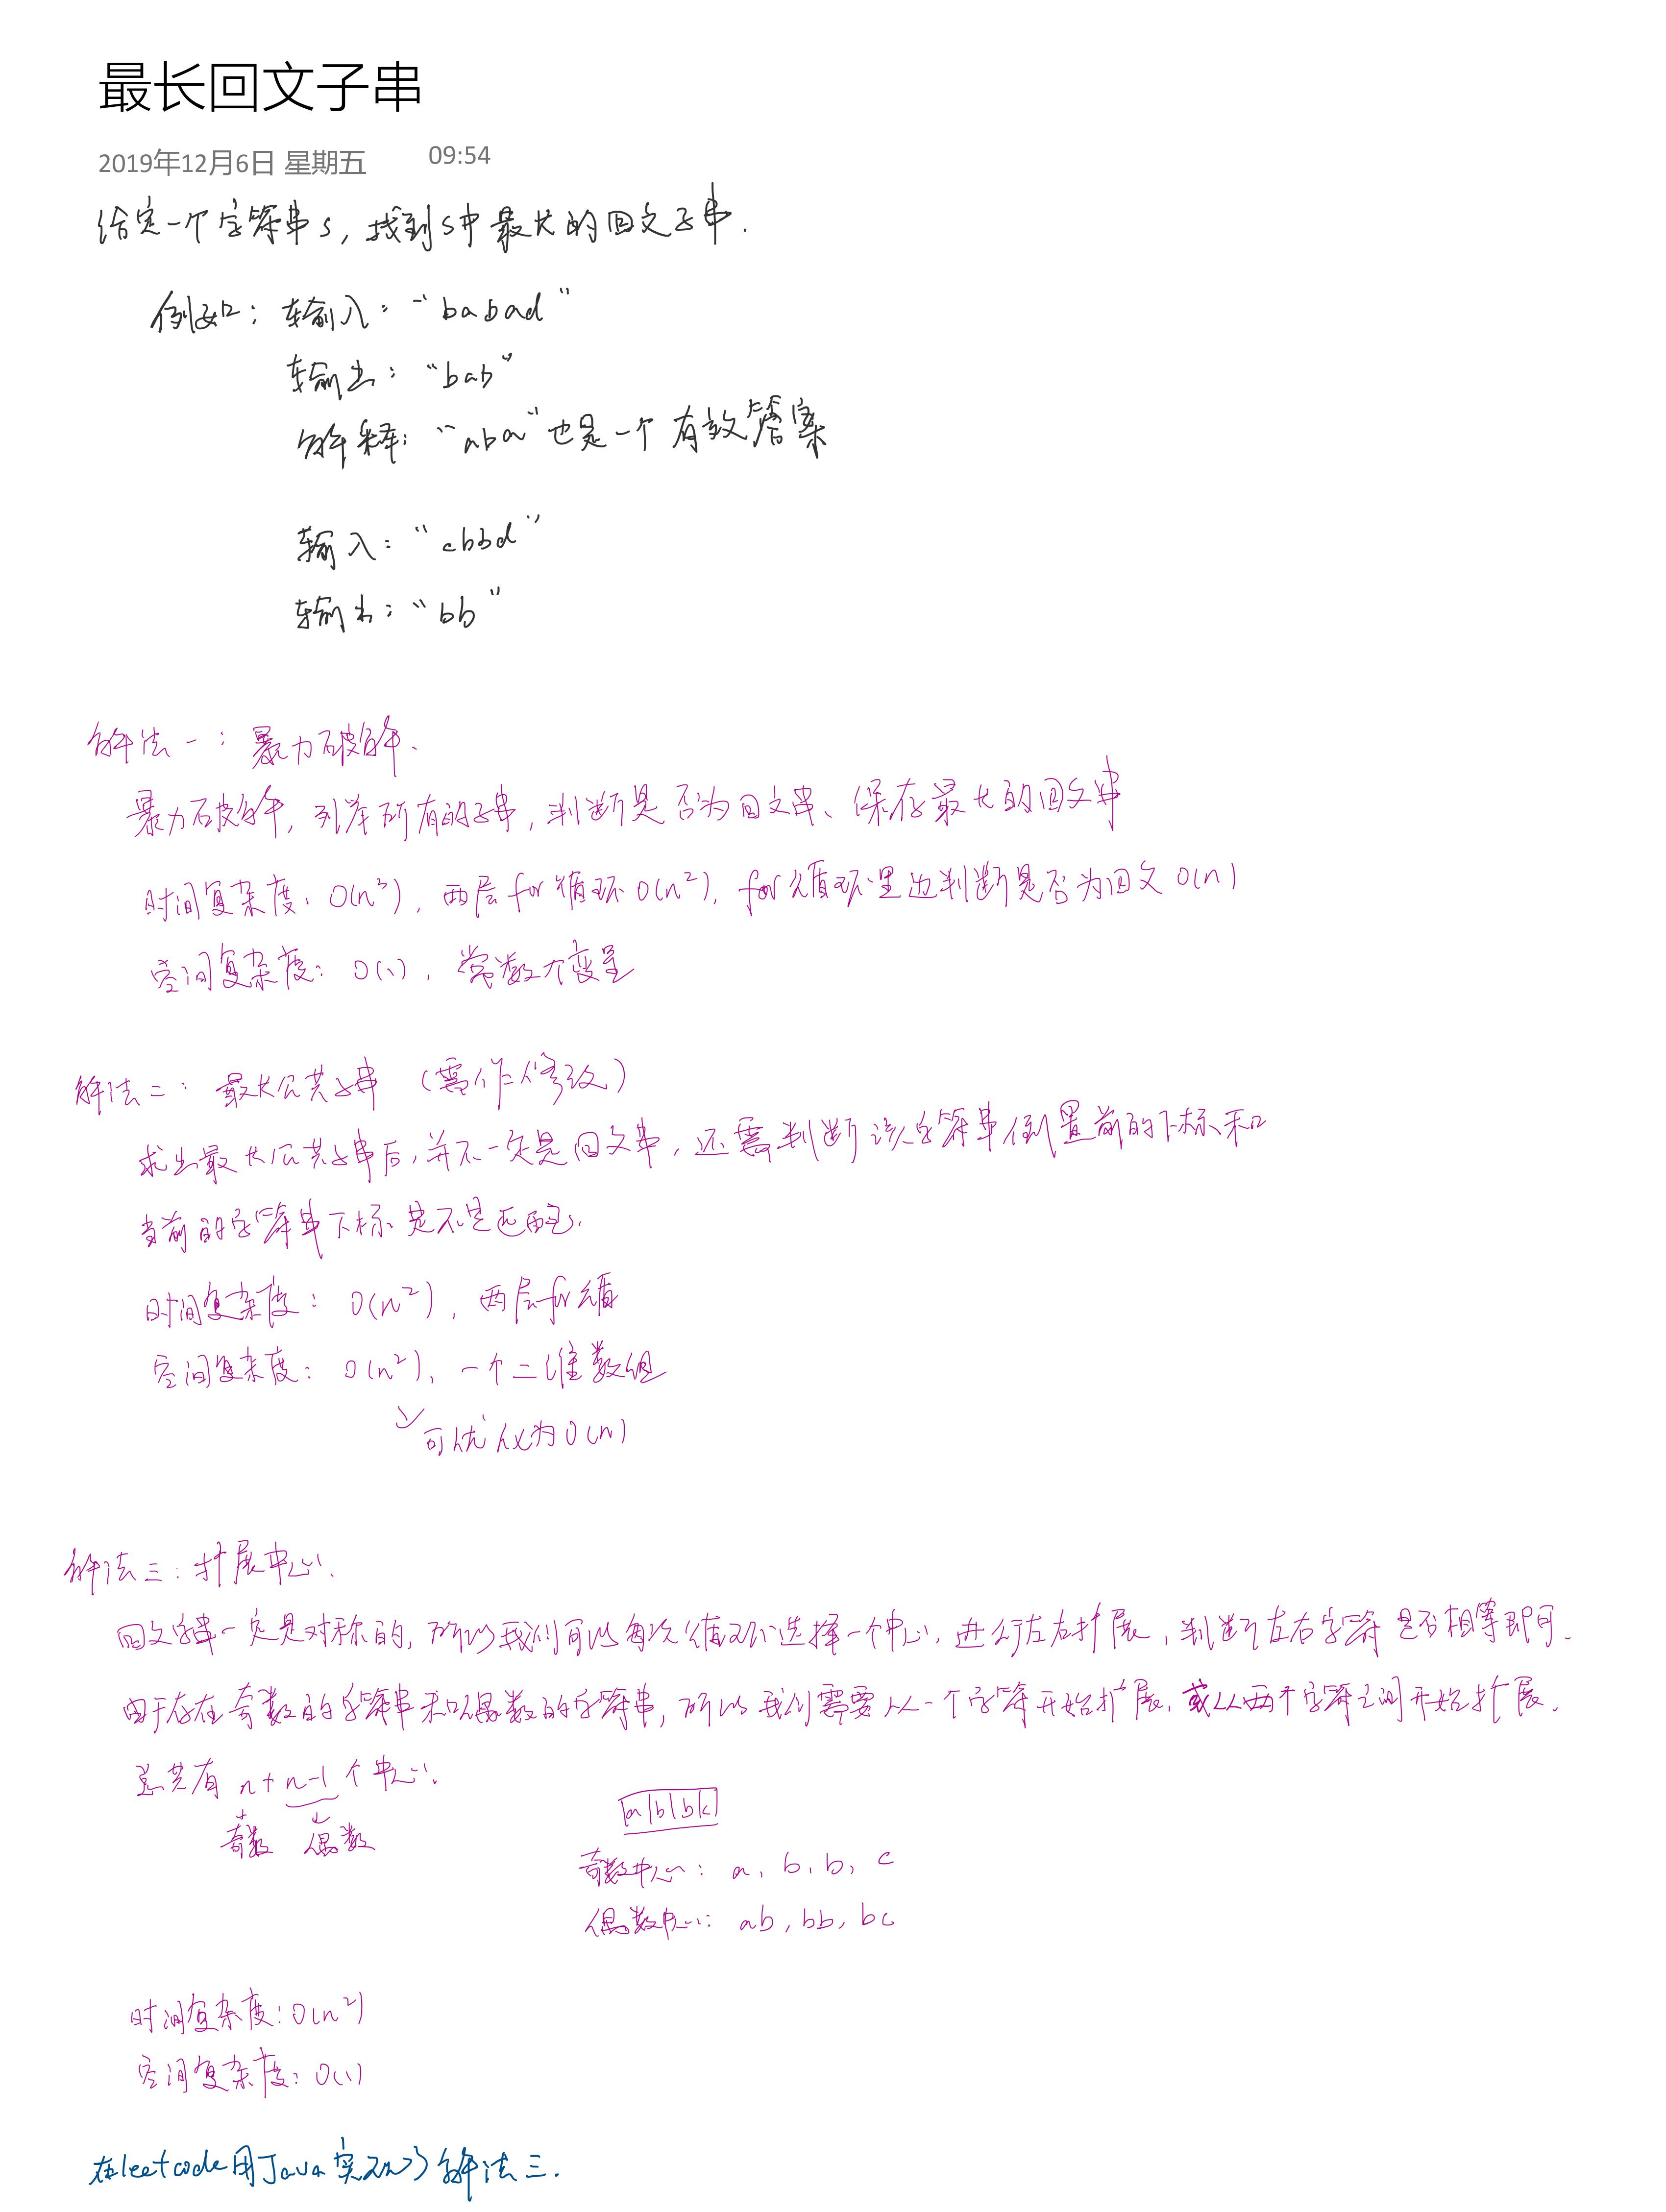 最长回文子串
2019年12月6日 星期五 09:54
给定一个字符串s，找到s中最长的回文子串.
例如：输入："babad"
输出："bab"
解释："aba"也是一个有效答案
输入："cbbd"
输出："bb"
解法一：暴力破解.
暴力破解，列举所有的子串，判断是否为回文串、保存最长的回文串
时间复杂度：O(n³)，两层for循环O(n²)，for循环里边判断是否为回文O(n)
空间复杂度：O(1)，常数个变量
解法二：最长公共子串（需作修改）
求出最长公共子串后，并不一定是回文串，还需判断该字符串倒置前的下标和
当前的字符串下标是不是匹配.
时间复杂度：O(n²)，两层for循
空间复杂度：O(n²)，一个二维数组
可优化为O(n)
解法三：扩展中心.
回文字串一定是对称的，所以我们可以每次循环选择一个中心，进行左右扩展，判断左右字符是否相等即可.
由于存在奇数的字符串和偶数的字符串，所以我们需要从一个字符开始扩展，或从两个字符之间开始扩展.
总共有 n+n-1 个中心.
奇数 偶数
a|b|b|c
奇数中心：a, b, b, c
偶数中心：ab, bb, bc
时间复杂度：O(n²)
空间复杂度：O(1)
在leetcode用Java实现了解法三.